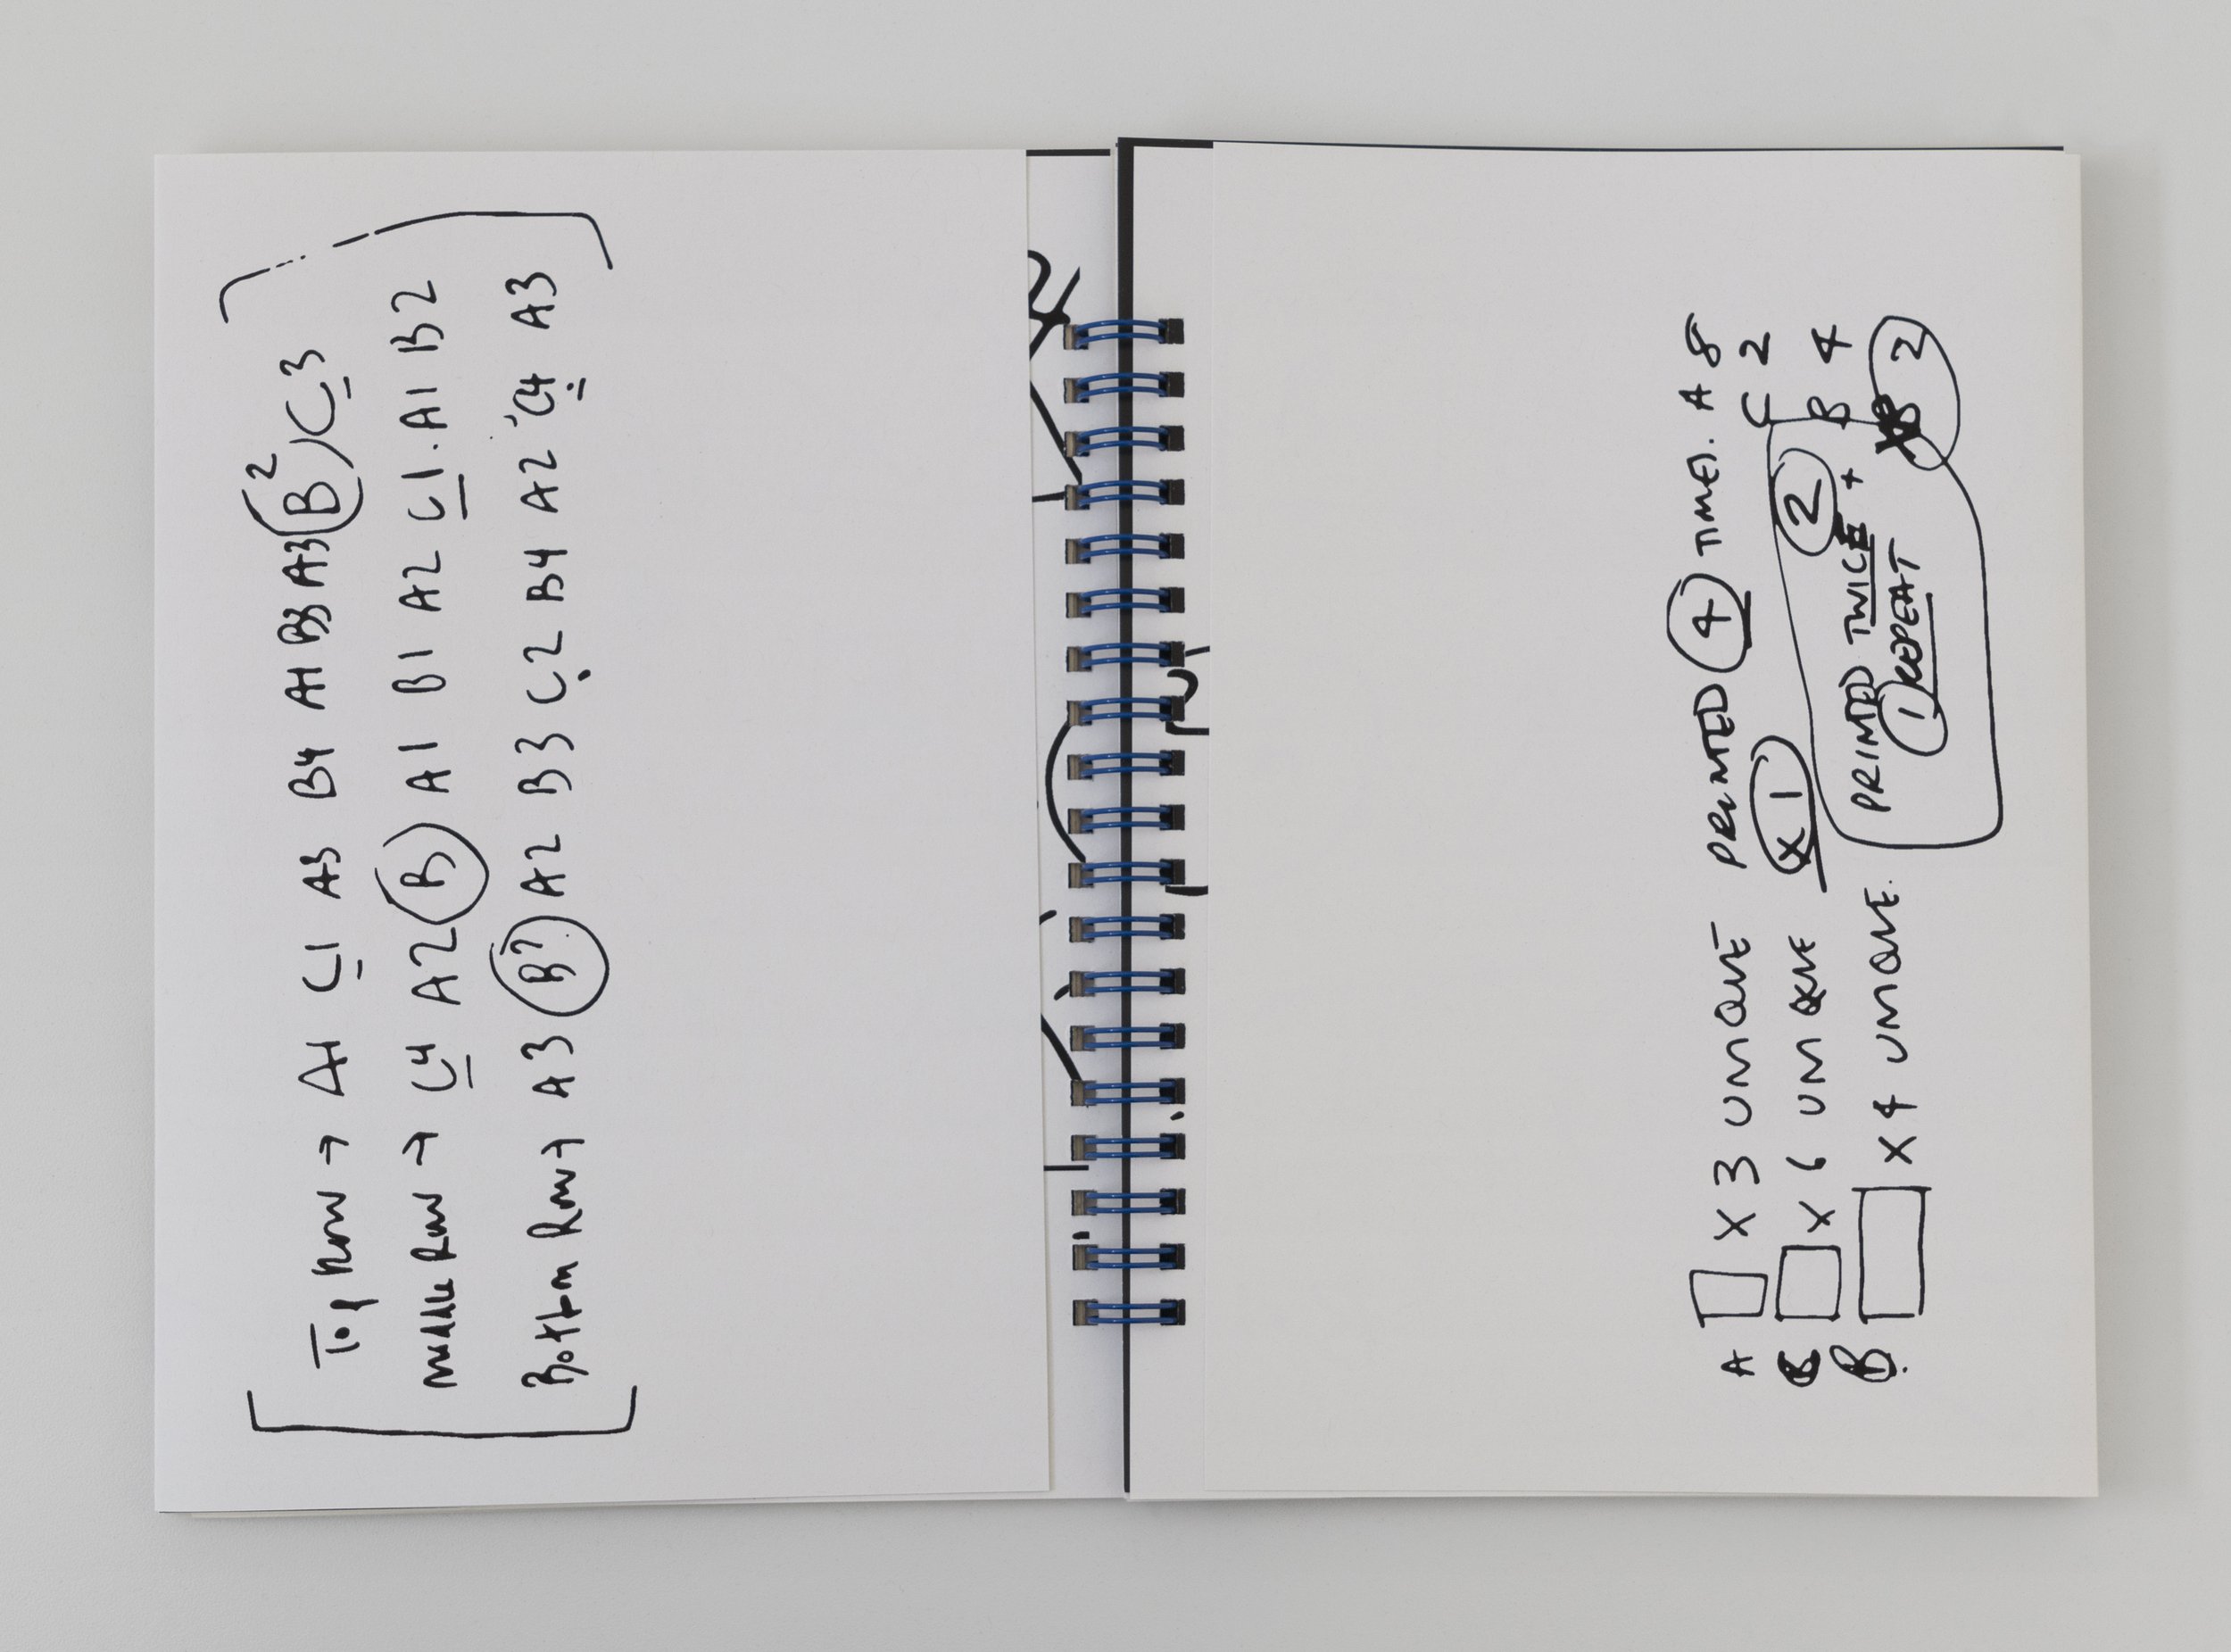 Top Row → A1 C1 A3 B4 A1 B3 A3 B2 C3
Middle Row → C4 A2 B A1 B1 A2 C1. A1 B2
Bottom Row → A3 B? A2 B3 C2 B4 A2 C4 A3
A x 3 UNIQUE PRINTED 4 TIMES. A 8
x 6 UNIQUE x 1 C 2
B. x 4 UNIQUE. PRINTED TWICE + 2 B 4
1 REPEAT B 2